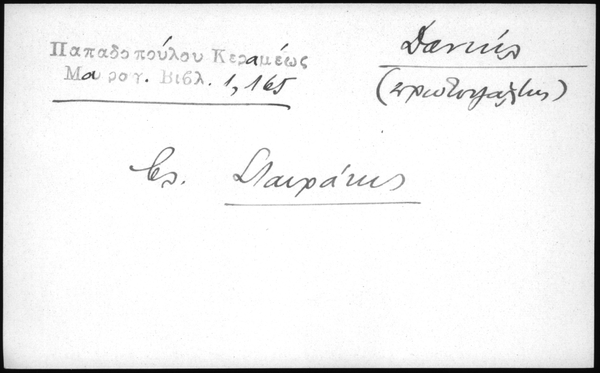 Παπαδοπούλου Κεραμέως
Μαυρογ. Βιβλ. 1, 165
Δανιήλ
(πρωτοψάλτης)
βλ. Σταυράκης